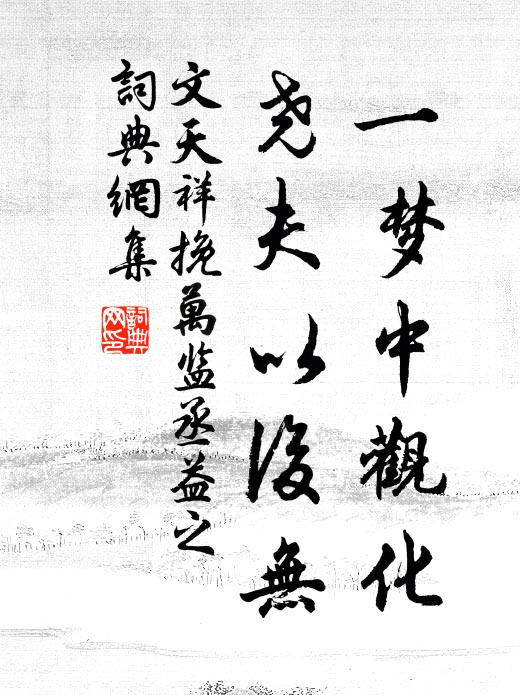 一梦中觀化
尧夫以後無
文天祥挽萬监丞益之
詞典網集
詞典
网印